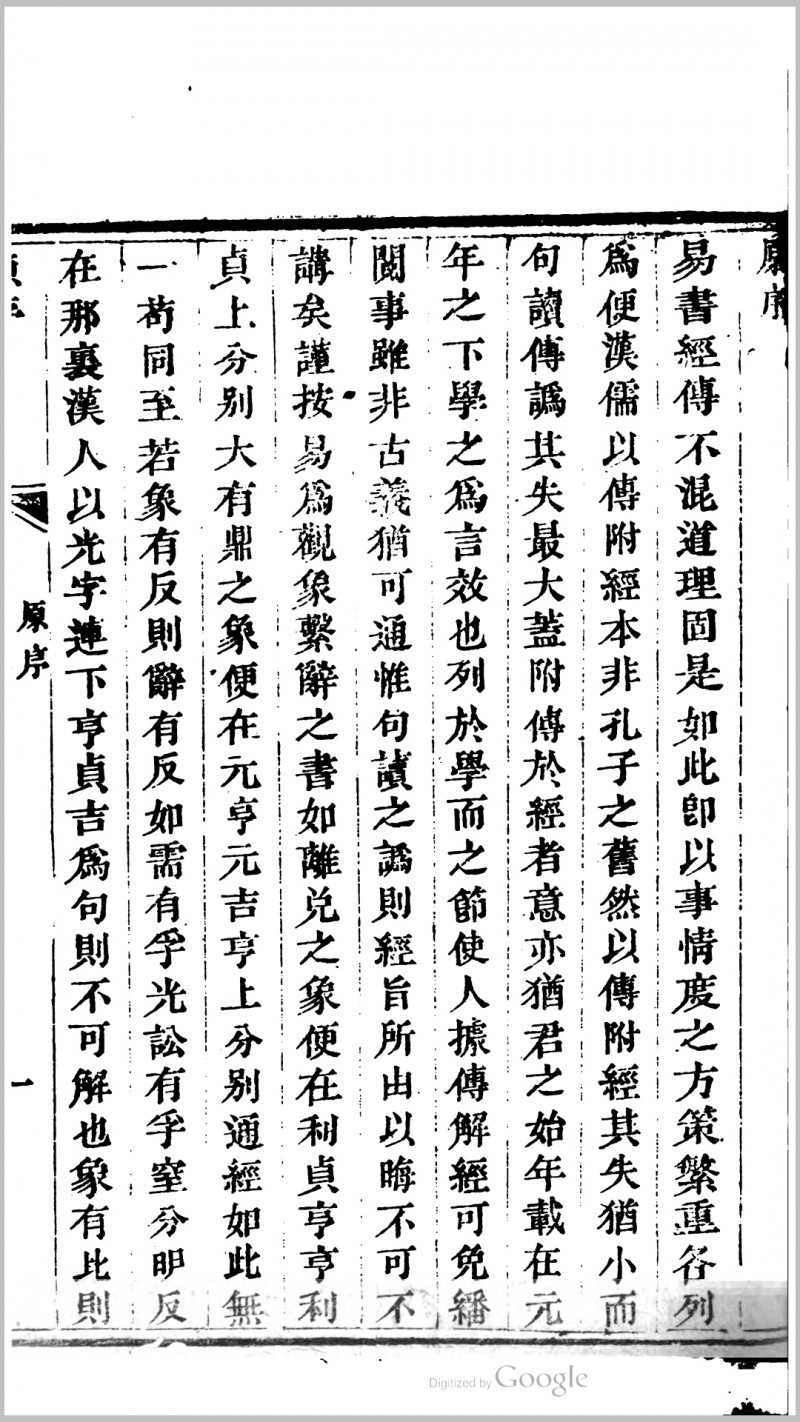 原序
易書經傳不混道理固是如此卽以事情度之方策繁重各列
爲便漢儒以傳附經本非孔子之舊然以傳附經其失猶小而
句讀傳譌其失最大蓋附傳於經者意亦猶君之始年載在元
年之下學之爲言效也列於學而之節使人據傳解經可免繙
閱事雖非古義猶可通惟句讀之譌則經旨所由以晦不可不
講矣謹按易爲觀象繫辭之書如離兌之象便在利貞亨亨利
貞上分别大有鼎之象便在元亨元吉亨上分别通經如此無
一苟同至若象有反則辭有反如需有孚光訟有孚窒分明反
在那裏漢人以光字連下亨貞吉爲句則不可解也象有比則
原序
一
Digitized by Google